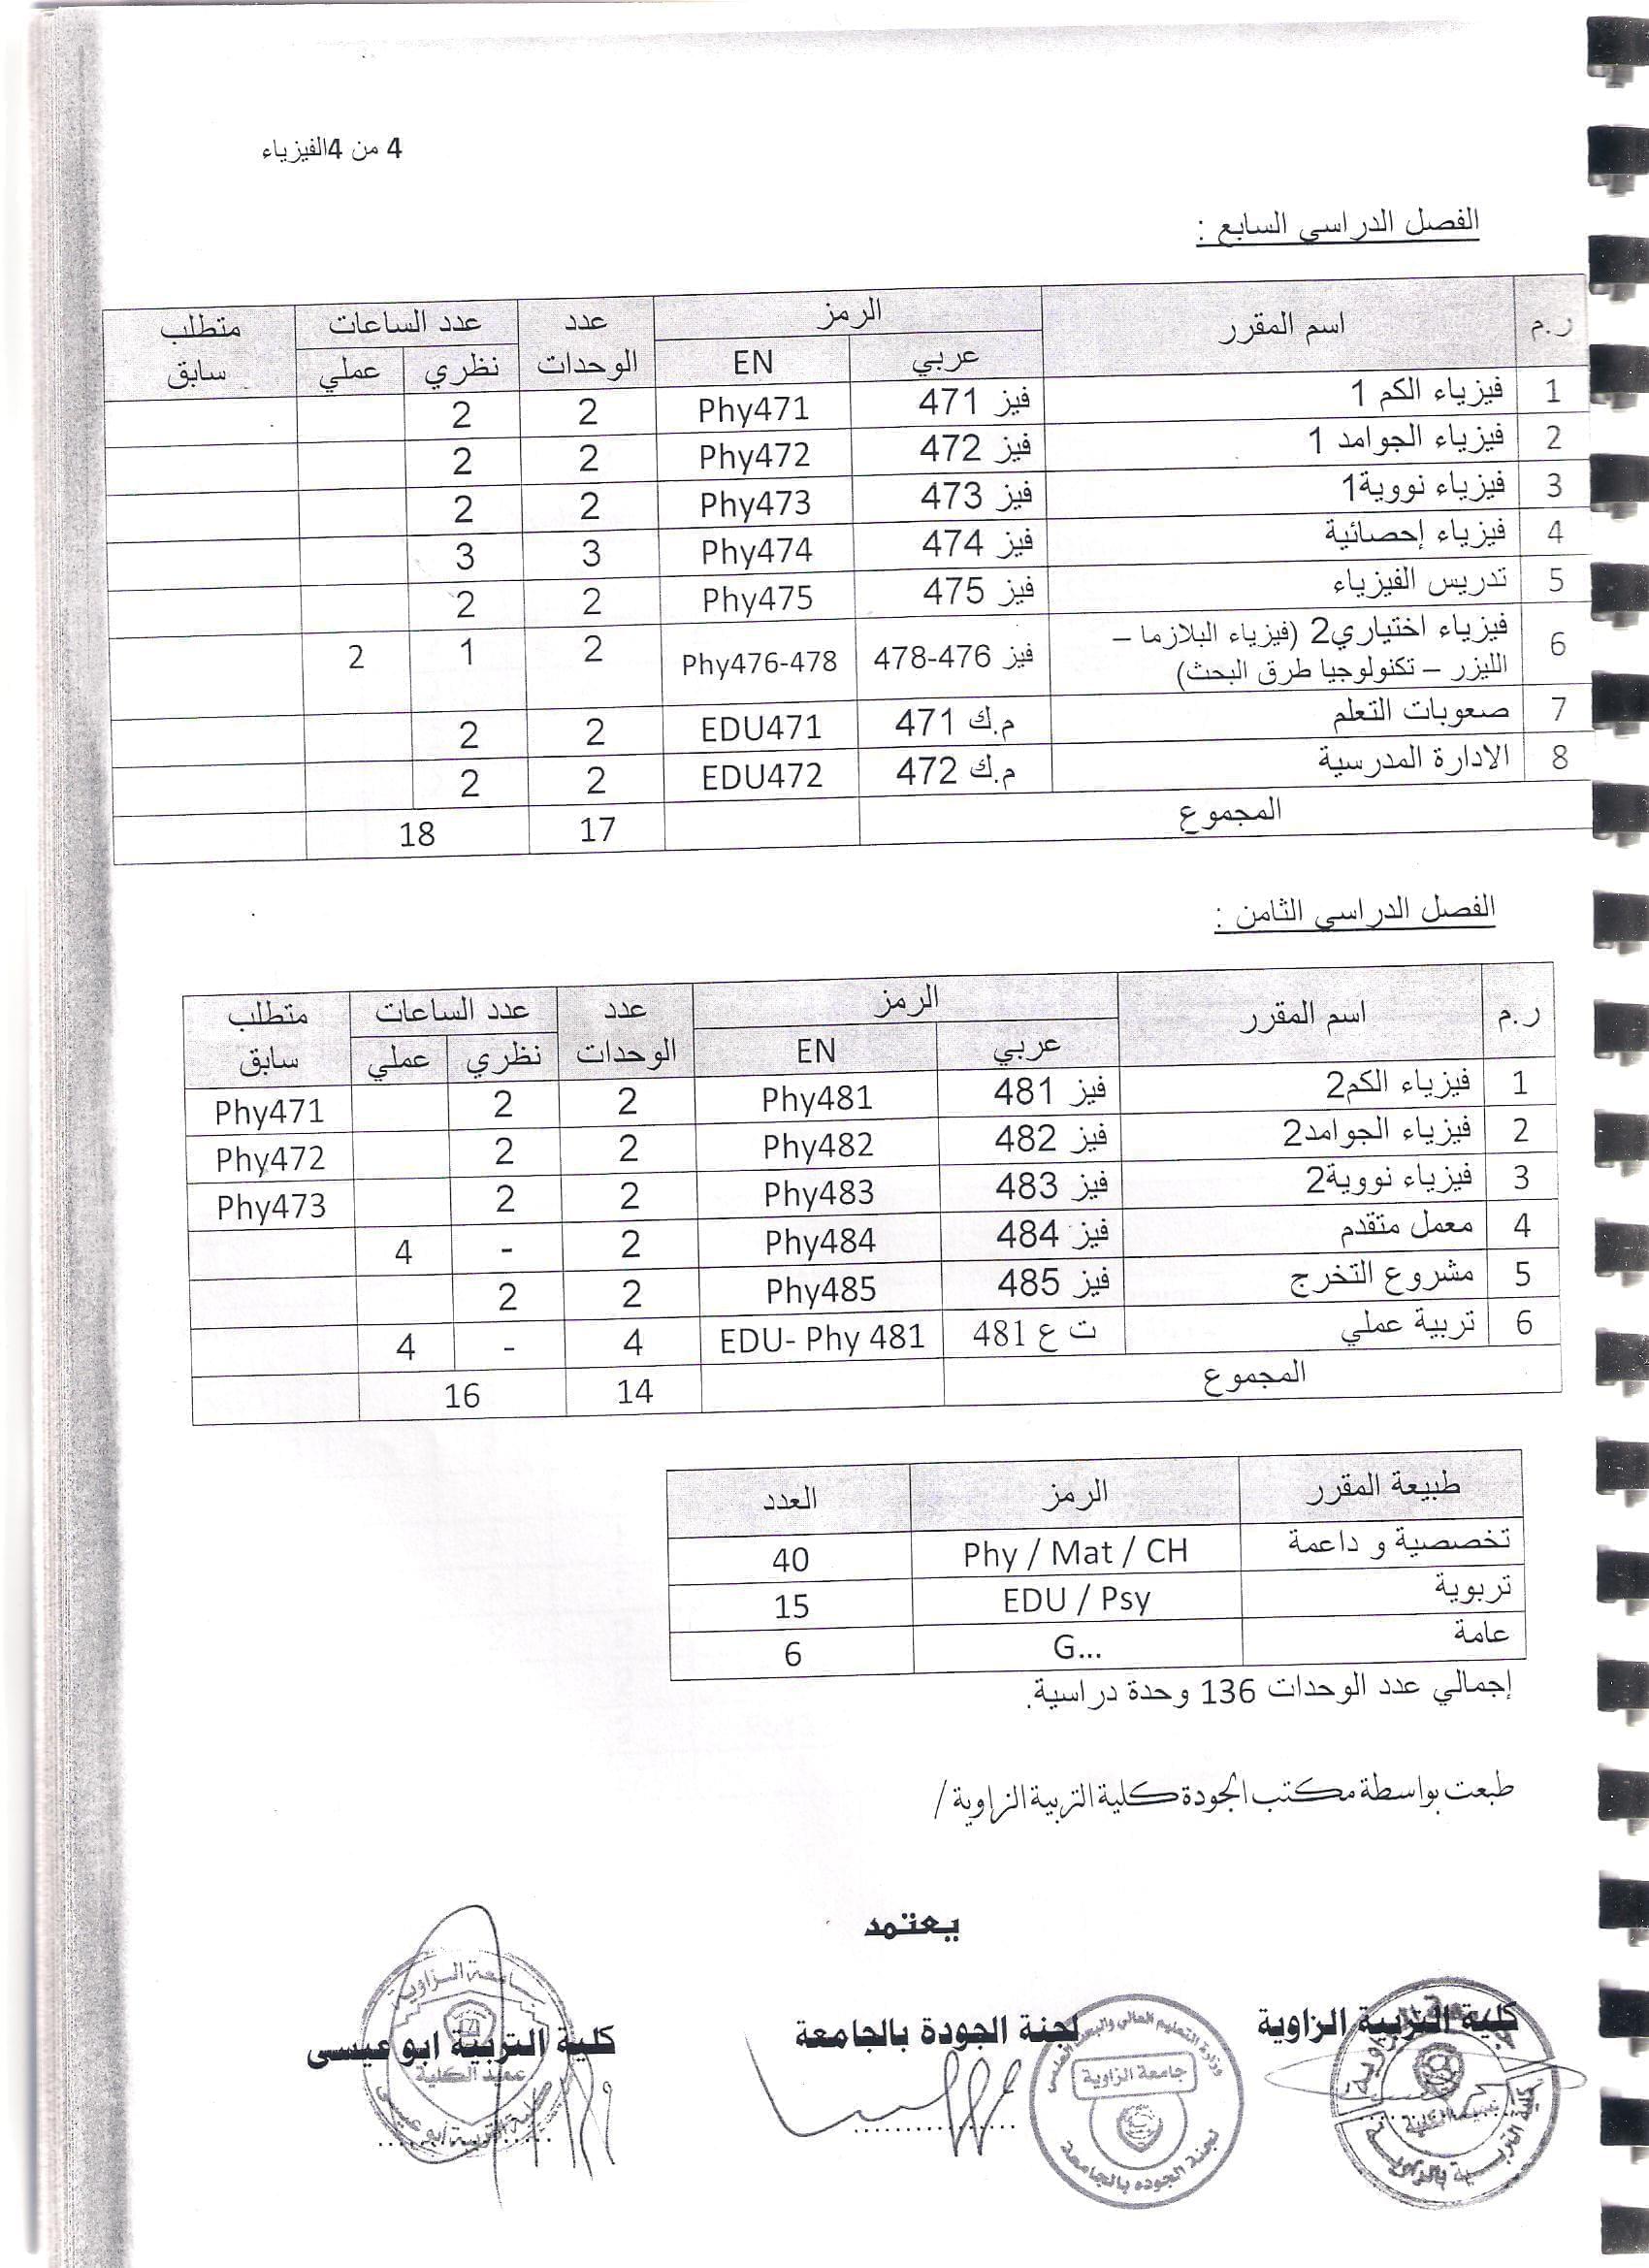 4 من 4الفيزياء
الفصل الدراسي السابع :
ر.م اسم المقرر الرمز عدد الوحدات عدد الساعات متطلب سابق
عربي EN نظري عملي
1 فيزياء الكم 1 فيز 471 Phy471 2 2
2 فيزياء الجوامد 1 فيز 472 Phy472 2 2
3 فيزياء نووية1 فيز 473 Phy473 2 2
4 فيزياء إحصائية فيز 474 Phy474 3 3
5 تدريس الفيزياء فيز 475 Phy475 2 2
6 فيزياء اختياري2 (فيزياء البلازما – الليزر – تكنولوجيا طرق البحث) فيز 476-478 Phy476-478 2 1 2
7 صعوبات التعلم م.ك 471 EDU471 2 2
8 الادارة المدرسية م.ك 472 EDU472 2 2
المجموع 17 18
الفصل الدراسي الثامن :
ر.م اسم المقرر الرمز عدد الوحدات عدد الساعات متطلب سابق
عربي EN نظري عملي
1 فيزياء الكم2 فيز 481 Phy481 2 2 Phy471
2 فيزياء الجوامد2 فيز 482 Phy482 2 2 Phy472
3 فيزياء نووية2 فيز 483 Phy483 2 2 Phy473
4 معمل متقدم فيز 484 Phy484 2 - 4
5 مشروع التخرج فيز 485 Phy485 2 2
6 تربية عملي ت ع 481 EDU- Phy 481 4 - 4
المجموع 14 16
طبيعة المقرر الرمز العدد
تخصصية و داعمة Phy / Mat / CH 40
تربوية EDU / Psy 15
عامة G... 6
إجمالي عدد الوحدات 136 وحدة دراسية.
طبعت بواسطة مكتب الجودة كلية التربية الزاوية /
يعتمد
كلية التربية الزاوية لجنة الجودة بالجامعة كلية التربية ابو عيسى
جامعة الزاوية
لجنة الجوده بالجامعة
جامعة الزاوية
عميد الكلية
كلية التربية ابو عيسى
كلية التربية بالزاوية